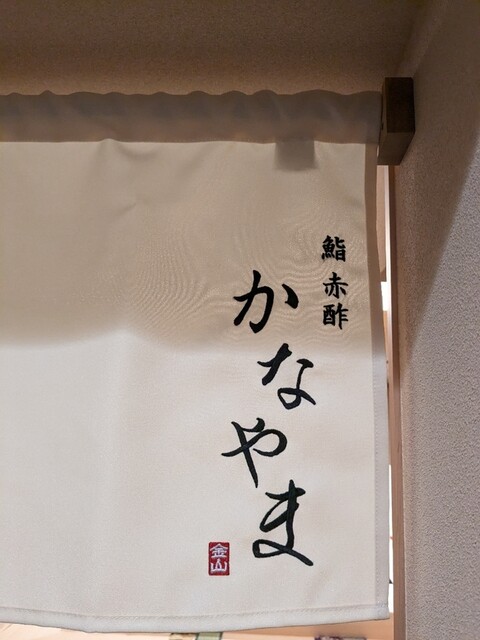 鮨 赤酢
かなやま
金山